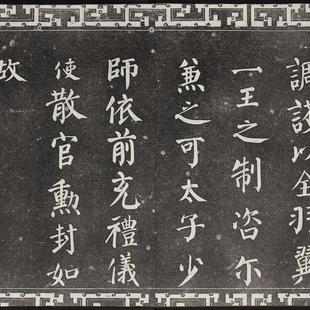 調護以全羽翼
一王之制咨尔
兼之可太子少
師依前充禮儀
使散官勳封如
故